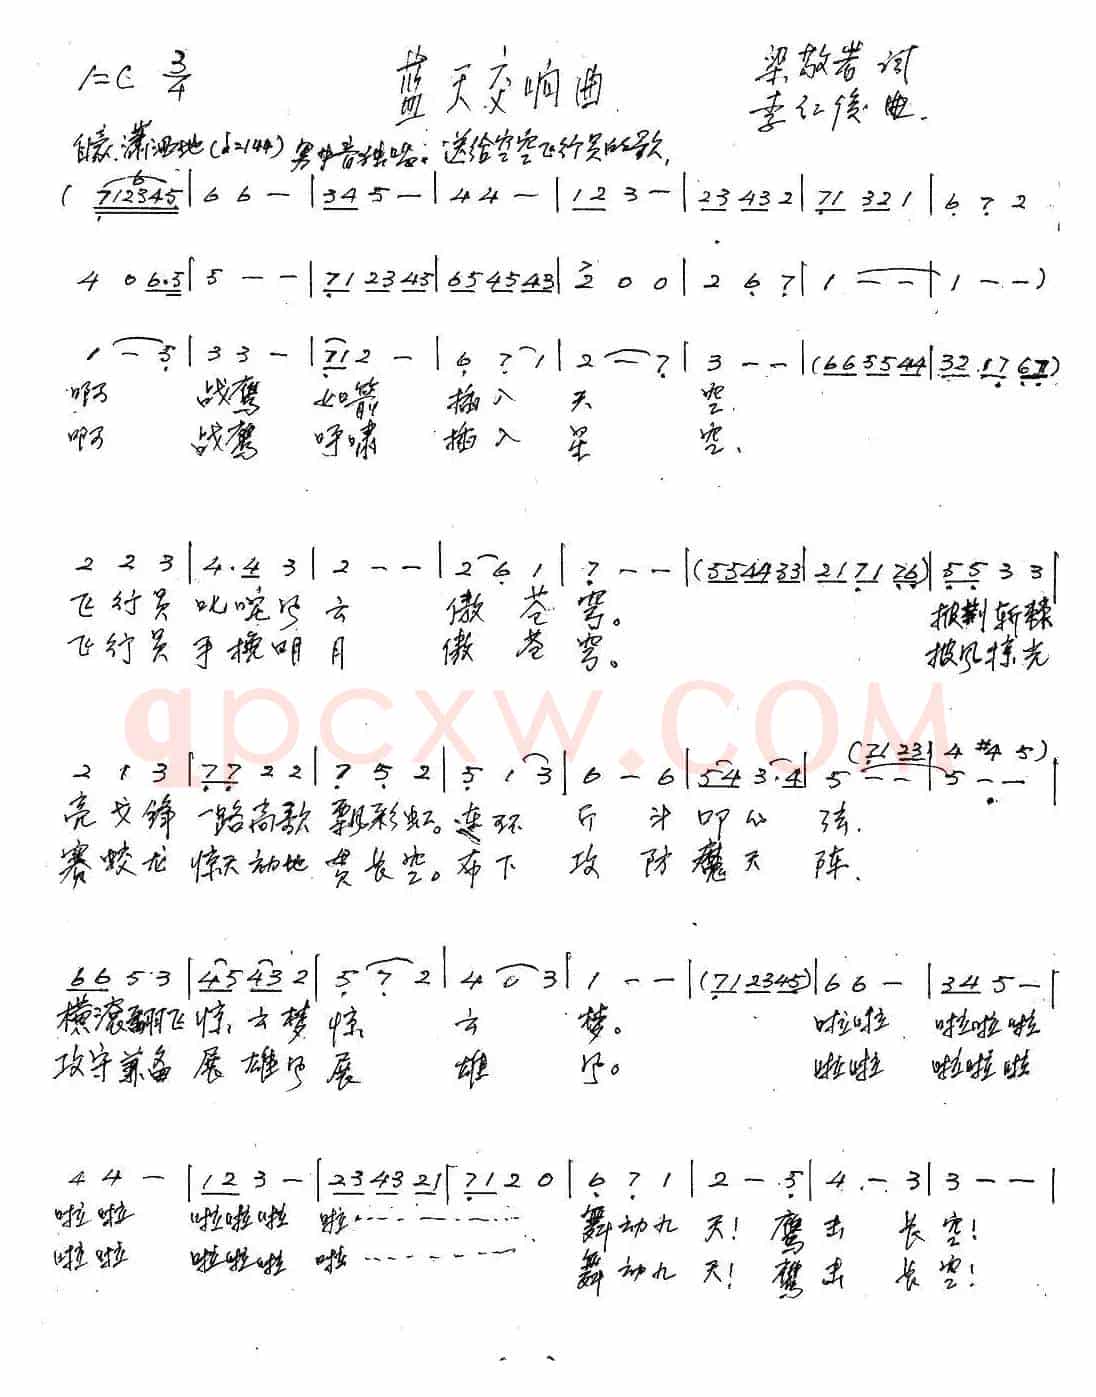 1=C 3/4 蓝天交响曲 梁敬岩 词
李红俊 曲.
自豪.潇洒地(♩=144) 男中音独唱: 送给空军飞行员的歌,
( 712345 | 6 6 — | 34 5 — | 4 4 — | 12 3 — | 23 43 2 | 71 32 1 | 6 7 2
4 0 6·5 | 5 — — | 71 23 45 | 65 45 43 | 2 0 0 | 2 6 7 | 1 — — | 1 — — )
1 — 5 | 3 3 — | 71 2 — | 6 7 1 | 2 — 7 | 3 — — | (66 55 44 | 32 17 67)
啊 战鹰 如箭 插入 天 空.
啊 战鹰 呼啸 插入 星 空.
2 2 3 | 4·4 3 | 2 — — | 2 6 1 | 7 — — | (55 44 33 | 21 71 76) | 55 3 3 |
飞行员 叱咤风 云 傲 苍 穹。 披荆斩棘
飞行员 手挽明 月 傲 苍 穹。 披风掠光
(71 23 | 4 #4 5)
2 1 3 | 77 2 2 | 7 5 2 | 5 1 3 | 6 — 6 | 54 3·4 | 5 — — | 5 — — |
亮戈锋 一路高歌 飘彩虹。连环 斤 斗 叩心 弦.
赛蛟龙 惊天动地 贯长空。布下 攻 防 魔天 阵.
66 5 3 | 45 43 2 | 5 7 2 | 4 0 3 | 1 — — | (71 23 45) | 6 6 — | 34 5 — |
横滚翻飞 惊云梦 惊 云 梦。 啦啦 啦啦啦
攻守兼备 展雄风 展 雄 风。 啦啦 啦啦啦
4 4 — | 12 3 — | 23 43 21 | 71 2 0 | 6 7 1 | 2 — 5 | 4 — 3 | 3 — — |
啦啦 啦啦啦 啦 舞动九 天! 鹰击 长 空!
啦啦 啦啦啦 啦 舞动九 天! 鹰击 长 空!
qpcxw.COM